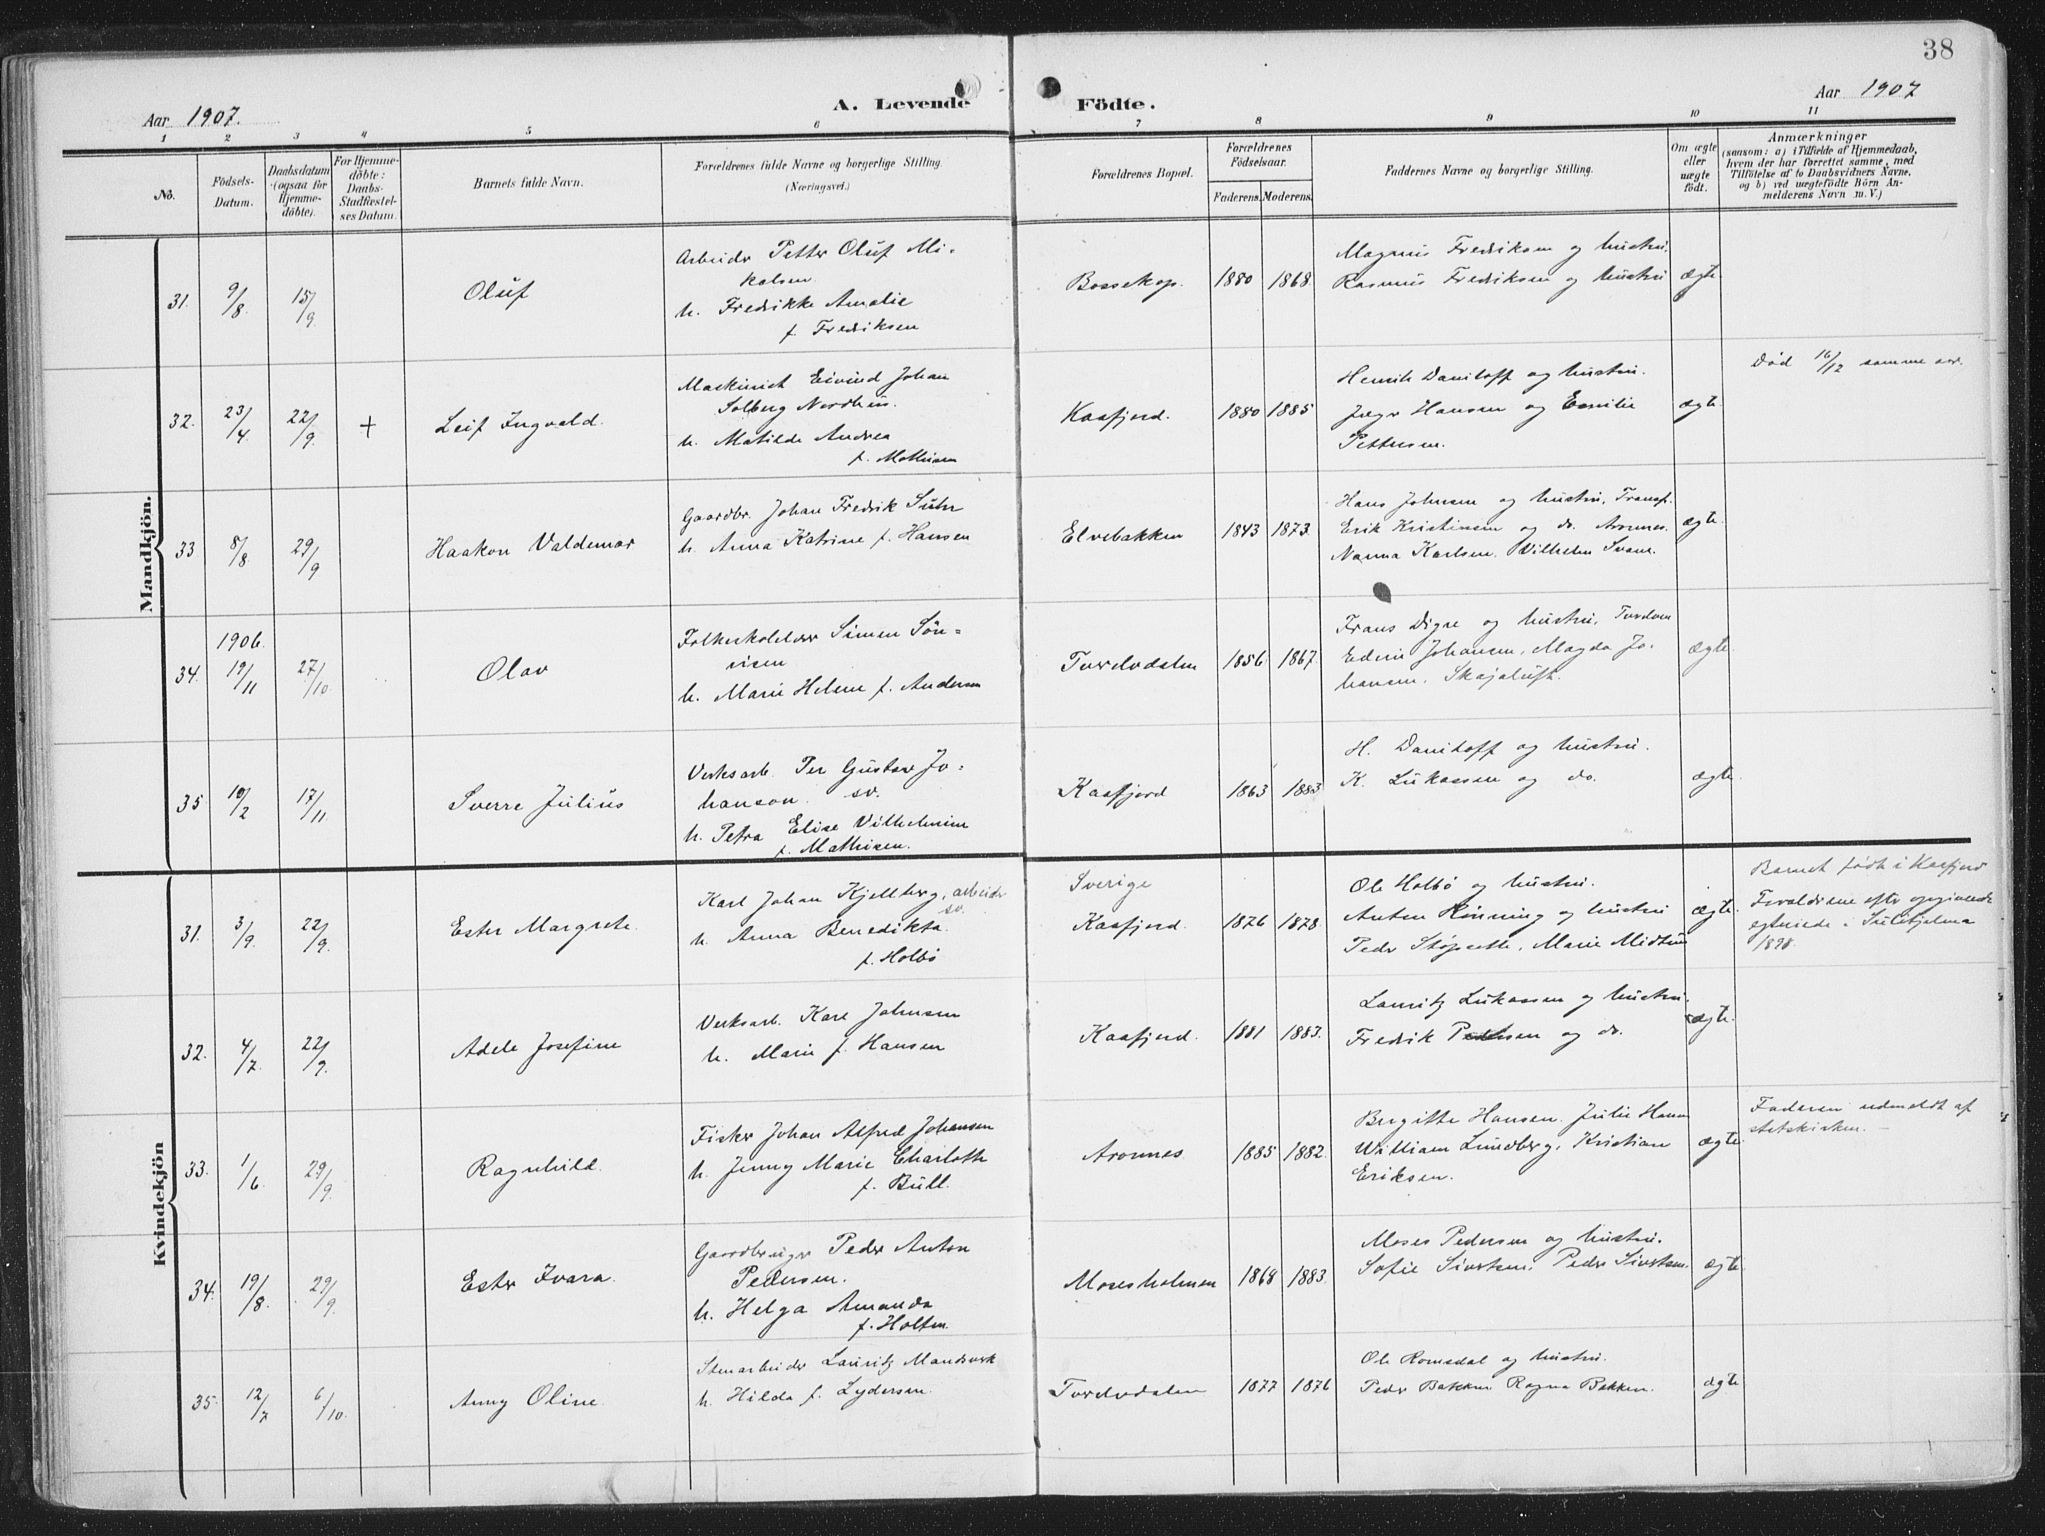 38
Aar 1907.
A. Levende
Födte.
Aar 1907
1 2 3 4 5 6 7 8 9 10 11
No.
Födsels-
Datum.
Daabsdatum
(ogsaa for
Hjemme-
döbte).
For Hjemme-
döbte:
Daabs-
Stadfæstel-
ses Datum.
Barnets fulde Navn.
Forældrenes fulde Navne og borgerlige Stilling.
(Næringsvei.)
Forældrenes Bopæl.
Forældrenes
Födselsaar.
Faderens. Moderens.
Faddernes Navne og borgerlige Stilling.
Om ægte
eller
uægte
födt.
Anmærkninger
(saasom: a) i Tilfælde af Hjemmedaab,
hvem der har forrettet samme, med
Tilföielse af to Daabsvidners Navne,
og b) ved uægtefödte Börn An-
melderens Navn m. V.)
Mandkjön.
31. 9/8 15/9 Oluf
Arbeider Petter Oluf Mi-
kalsen
h. Fredrikke Amalie
f. Fredriksen
Bossekop. 1880 1868.
Magnus Fredriksen og hustru.
Rasmus Fredriksen og hustru
ægte
32. 23/4 22/9. + Leif Ingvald.
Maskinist Eivind Johan
Solberg Nordhus.
h. Matilde Andrea
f. Mathisen
Kaafjord. 1880 1885
Henrik Daniloff og hustru.
Jægr Hansen og Emilie
Pettersen.
ægte
Död 16/12 samme aar.
33 8/8 29/9 Haakon Valdemar
Gaardbr. Johan Fredrik Suhr
h. Anna Katrine f. Hansen
Elvebakken 1843 1873.
Hans Johnsen og hustru, Transf.
Erik Kristinsen og do. Aronnes.
Nanna Karlsen. Vilhelm Svane.
ægte
34. 1906. 19/11 27/10. Olav
Folkeskolelærer Simen Sön-
visen
h. Marie Helene f. Andersen
Tverelvdalen 1856. 1867.
Frans Digre og hustru, Tverelven
Edevin Johansen, Magda Jo-
hansen, Skajaluft.
ægte
35 19/2 17/11 Sverre Julius
Verksarb. Per Gustav Jo-
hanson. sv.
h. Petra Elise Vilhelmine
f. Mathisen.
Kaafjord 1863 1883
H. Daniloff og hustru.
K. Lukassen og do.
ægte
Kvindekjön
31. 3/9. 22/9. Ester Margrete.
Karl Johan Kjellberg, arbeider
sv.
h. Anna Benedikta
f. Holbö
Sverige
Kaafjord. 1876 1878.
Ole Holbö og hustru.
Anton Rönning og hustru
Peder Stöpseth, Marie Midtun
ægte.
Barnet födt i Kaafjord
Forældrene efter opgivende
egteviede i Sulitjelma
1898.
32. 4/7. 22/9. Adele Josefine
Verksarb. Karl Johnsen
h. Marie f. Hansen
Kaafjord. 1881 1883.
Lauritz Lukassen og hustru.
Fredrik Pedersen og do.
ægte.
33. 1/6 29/9. Ragnhild.
Fisker Johan Alfred Johansen
h. Jenny Marie Charlotte
f. Bull.
Aronnes 1885 1882.
Birgitte Hansen. Julie Hansen
William Lundberg, Kristian
Eriksen.
ægte
Faderen udmeldt af
statskirken. —
34. 19/8. 29/9. Ester Ivara.
Gaardbruger Peder Anton
Pedersen.
h. Helga Amanda
f. Holten.
Mosesholmen 1868 1883.
Moses Pedersen og hustru.
Sofie Sivertsen. Peder Sivertsen.
ægte.
35. 12/7 6/10. Anny Oline
Stenarbeider Lauritz Mandsverk
h. Hilda f. Lydersen.
Tverelvdalen 1877 1876
Ole Romsdal og hustru.
Peder Bakken Ragna Bakken.
ægte